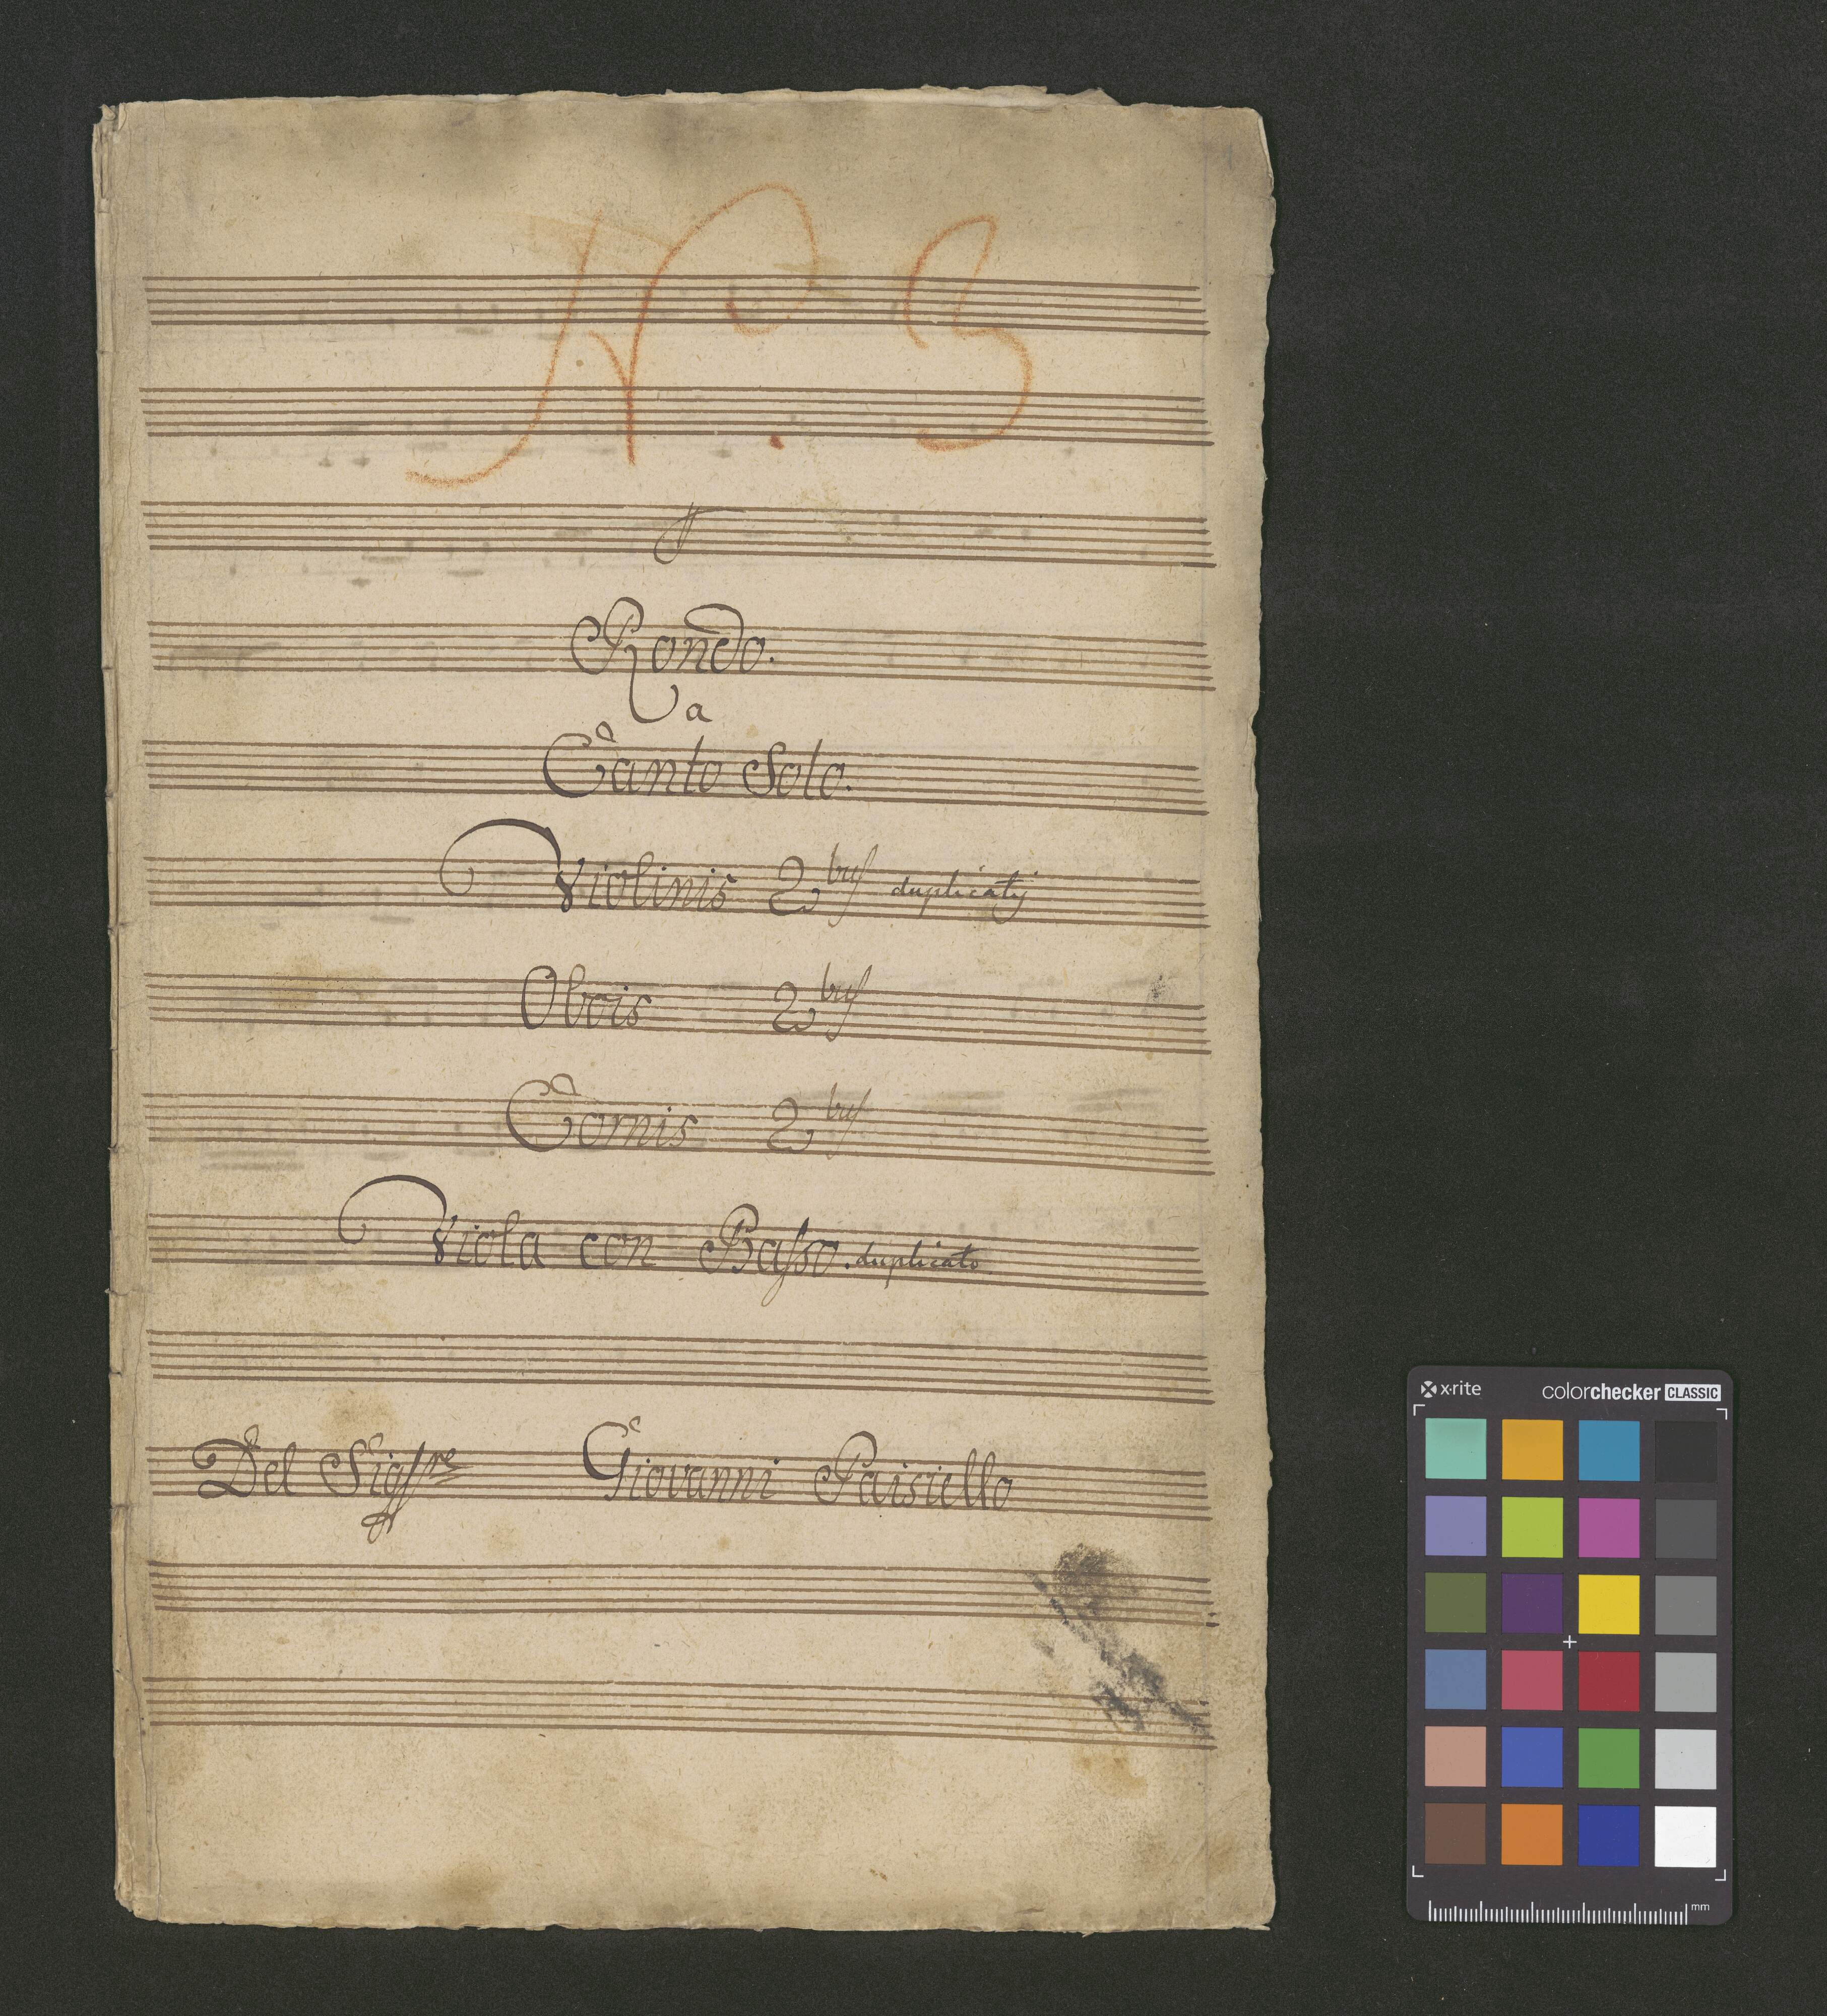 No. 3
Rondo.
a
Canto Solo.
Violinis 2bus duplicatij
Obois 2bus
Cornis 2bus
Viola con Basso. duplicato
Del Sigre Giovanni Paisiello
x·rite colorchecker CLASSIC
mm